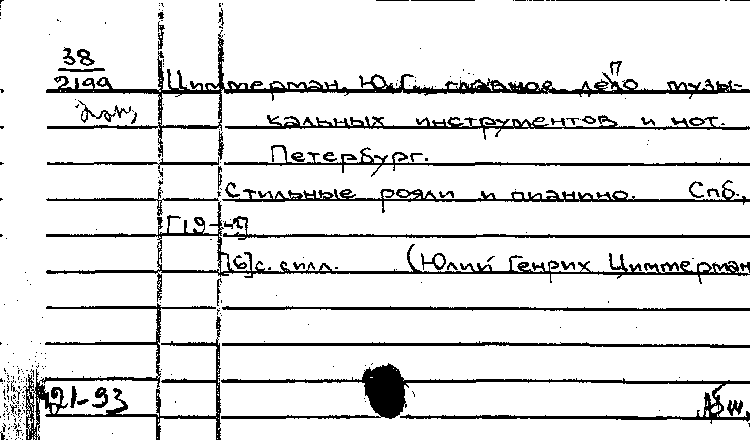 38
2199
Циммерман, Ю.Г., главное депо музы-
кальных инструментов и нот.
Петербург.
Стильные рояли и пианино. Спб.,
[19--]
[6]с. с илл. (Юлий Генрих Циммерман
421-93